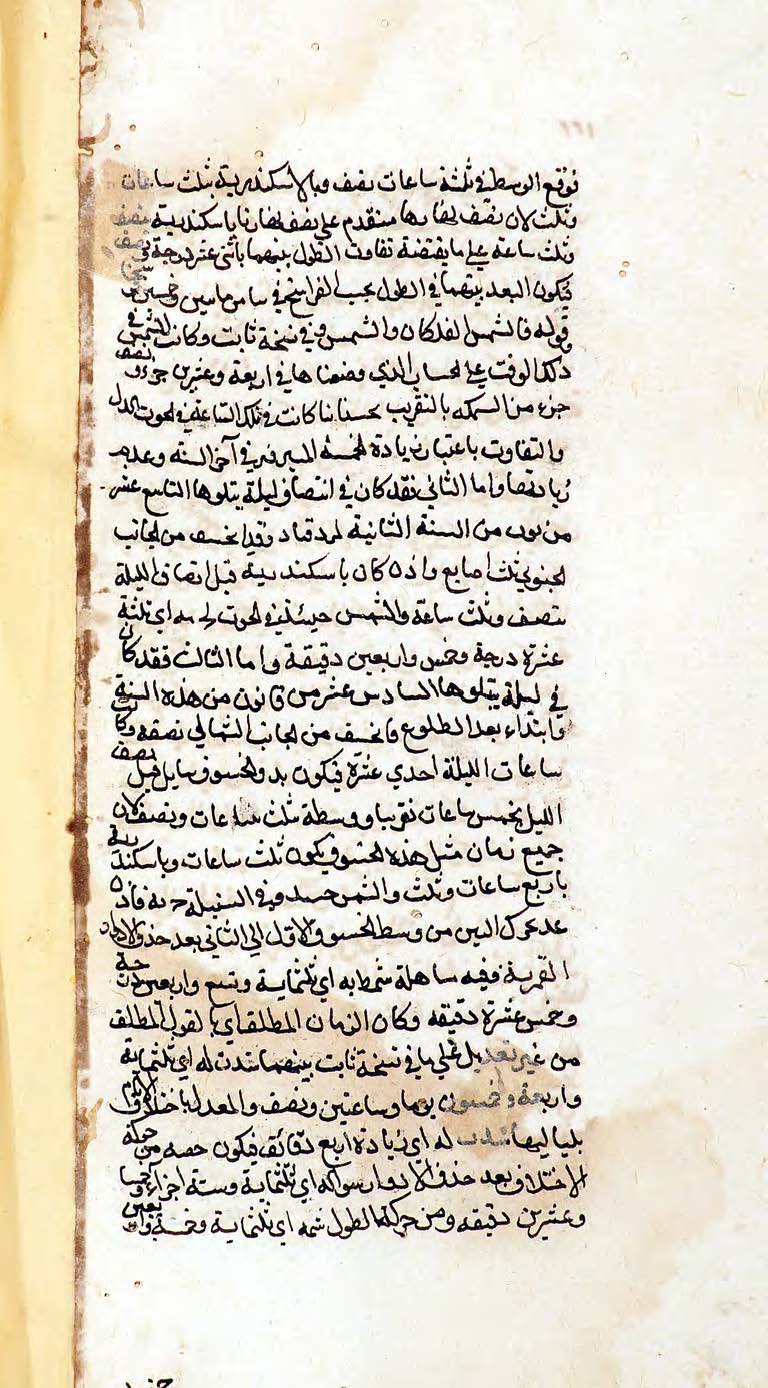 فوقع الوسط في ثلثة ساعات نصف وبالاسكندرية بثلث ساعات
وثلث لان نصف نهارها متقدم علي نصف نهارنا باسكندرية بنصف
وثلث ساعة علي ما يقتضة تفاوت الطول بينهما باثني عشر درجة ونصف
فيكون البعد بينهما في الطول بحسب الفراسخ
قوله فالشمس الفلكان والشمس وفي نسخة ثابت وكانت الشمس في
ذلك الوقت علي الحساب الذي وضعناها في اربعة وعشرين جزءا ونصف
جزء من السمكه بالتقريب بحسابنا كانت في تلك الساعة في الحوت
والتفاوت باعتبار زيادة الخمسة المسترقة في آخر السنه وعدم
زيادتها واما الثاني فقد كان في انتصاف ليلة يتلوها التاسع عشر
من توت من السنة الثانية لمردقباد وقد انخسف من الجانب
الجنوبي ثلث اصابع واذ كان باسكندرية قبل انتصاف الليلة
بنصف وثلث ساعة والشمس حينئذ في الحوت اي ثلثة
عشرة درجة وخمس واربعين دقيقة واما الثالث فقد كان
في ليلة يتلوها السادس عشر من قانون من هذه السنة
وابتداء بعد الطلوع فانخسف من الجانب الشمالي نصفه وكانت
ساعات الليلة احدي عشرة فيكون بدو الخسوف مايل قبل نصف
الليل بخمس ساعات تقريبا ووسطة بثلث ساعات ونصف لان
جميع زمان مثل هذه الخسوف يكون ثلث ساعات وباسكندرية
باربع ساعات وثلث والشمس في السنبلة فاذن
عد حركة النيرين من وسط الخسوف الاول الي الثاني بعد حذف الادوار
القمرية ففيه ساهلة شمطابه اي ثلثماية وتسع واربعين درجة
وخمس عشرة دقيقه وكان الزمان المطلق اي لقول المطلق
من غير تعديل علي ما في نسخة ثابت بينهما شدت له اي ثلثماية
واربعة وخمسون يوما وساعتين ونصف والمعدل باختلاف الايام
بلياليها شدت له اي زيادة اربع دقائق فيكون حصه من حركة
الاختلاف بعد حذف الادوار سواكه اي ثلثماية وستة اجزاء وخمسا
وعشرين دقيقه ومن حركة الطول شمه اي ثلثماية وخمسة واربعين